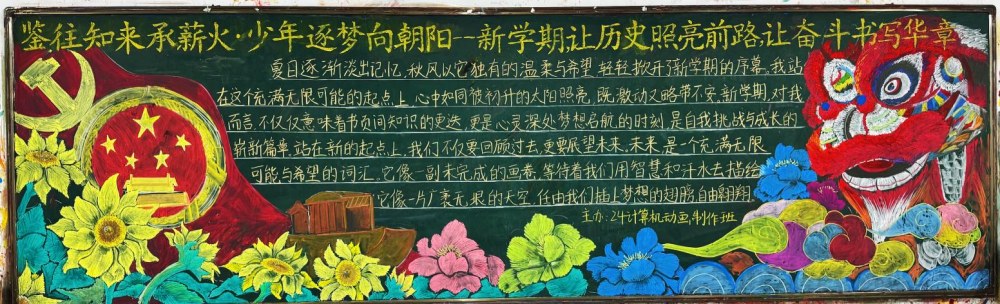 鉴往知来承薪火·少年逐梦向朝阳--新学期,让历史照亮前路,让奋斗书写华章
夏日逐渐淡出记忆,秋风以它独有的温柔与希望,轻轻掀开新学期的序幕,我站
在这个充满无限可能的起点上,心中如同被初升的太阳照亮,既激动又略带不安,新学期,对我
而言,不仅仅意味着书页间知识的更迭,更是心灵深处梦想启航的时刻,是自我挑战与成长的
崭新篇章,站在新的起点上,我们不仅要回顾过去,更要展望未来,未来,是一个充满无限
可能与希望的词汇,它像一副未完成的画卷,等待着我们用智慧和汗水去描绘
它像一片广袤无垠的天空,任由我们插上梦想的翅膀,自由翱翔.
主办:24计算机动画制作班